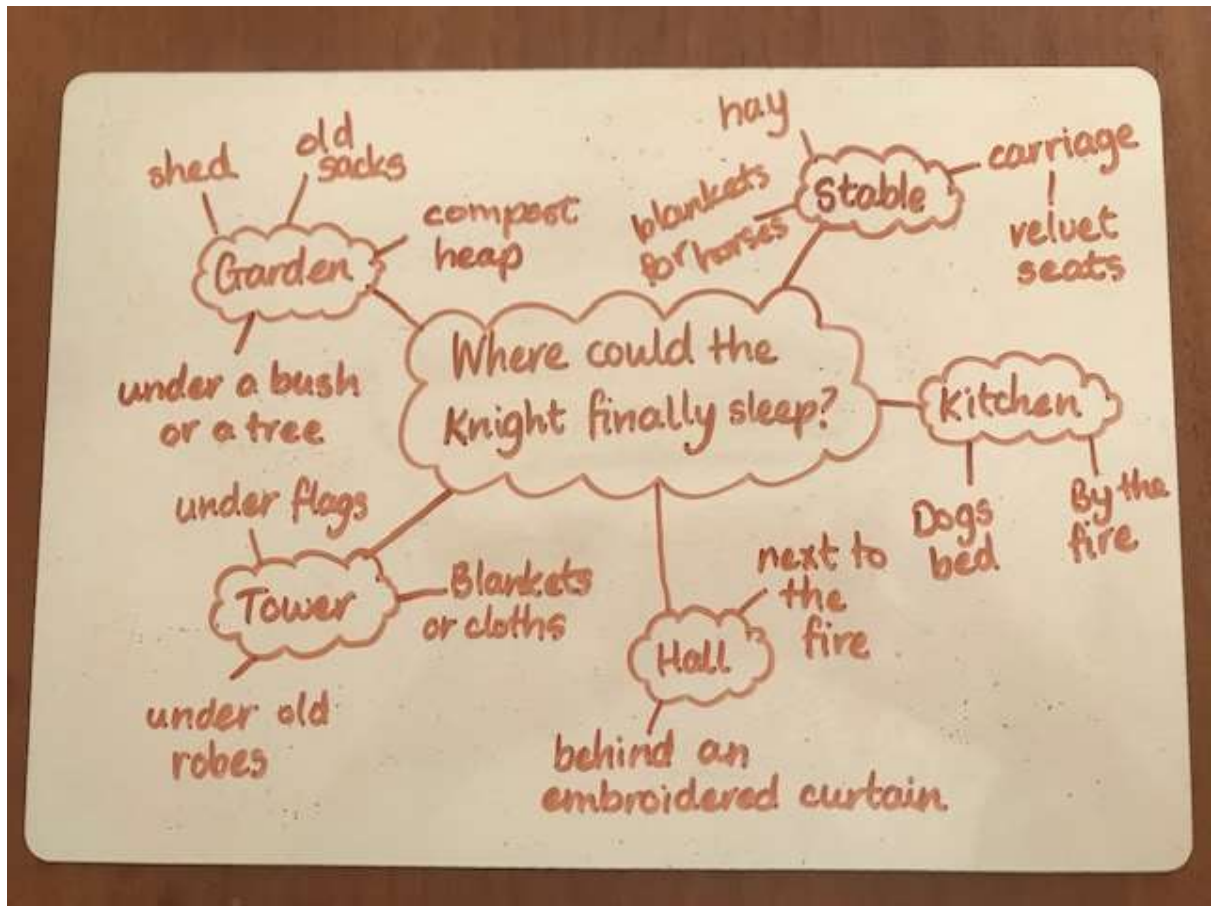 Where could the
Knight finally sleep?
Garden
shed
old
sacks
compost
heap
under a bush
or a tree
Stable
hay
blankets
for horses
carriage
velvet
seats
Kitchen
Dogs
bed
By the
fire
Hall
next to
the
fire
behind an
embroidered curtain
Tower
under flags
Blankets
or cloths
under old
robes